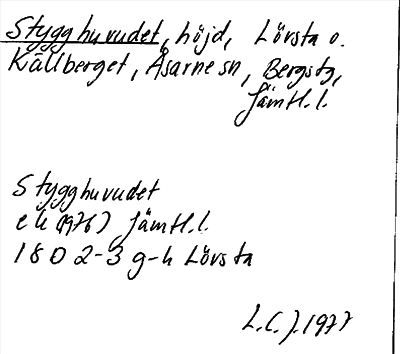 Stygghuvudet, höjd, Lövsta o.
Källberget, Åsarne sn, Bergstg,
Jämtl.l.
Stygghuvudet
ek (1976) Jämtl.l.
18D 2-3 g-h Lövsta
L.C.J. 1977